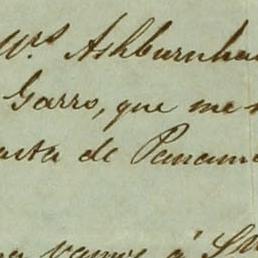 Mrs Ashburnha
Garro, que me
arta de Panamá
vamos á